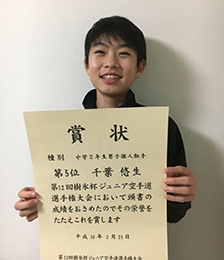 賞状
種別 中学2年生男子個人組手
第5位 千葉 悠生
第12回樹氷杯ジュニア空手道
選手権大会において頭書の
成績をおさめたのでその栄誉を
たたえこれを賞します
平成30年2月25日
第12回樹氷杯ジュニア空手道選手権大会